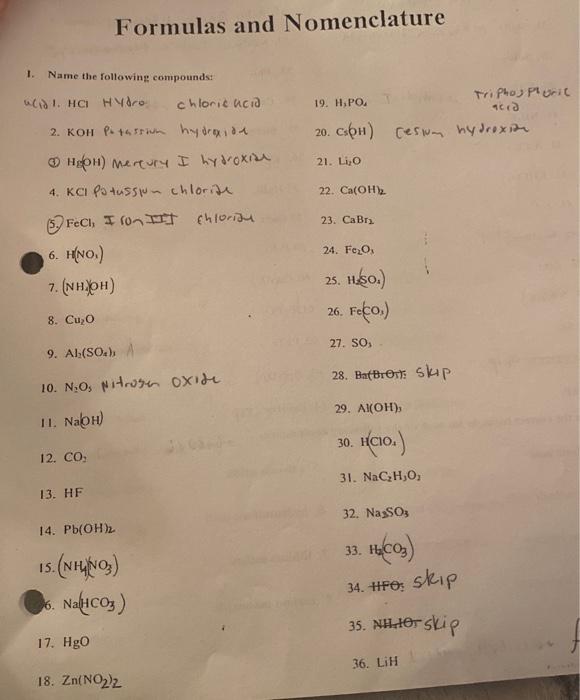 Formulas and Nomenclature
1. Name the following compounds:
acid 1. HCl Hydro chloric acid
2. KOH Potassium hydroxide
3 Hg(OH) mercury I hydroxide
4. KCl Potassium chloride
5. FeCl₃ Iron III chloride
6. H(NO₃)
7. (NH₄)(OH)
8. Cu₂O
9. Al₂(SO₄)₃ A
10. N₂O₅ Nitrogen oxide
11. Na(OH)
12. CO₂
13. HF
14. Pb(OH)2
15. (NH₄)(NO₃)
6. Na(HCO₃)
17. HgO
18. Zn(NO₂)2
19. H₃PO₄ Triphosphoric acid
20. Cs(OH) Cesium hydroxide
21. Li₂O
22. Ca(OH)2
23. CaBr₂
24. Fe₂O₃
25. H₂(SO₄)
26. Fe(CO₃)
27. SO₃
28. skip
29. Al(OH)₃
30. H(ClO₄)
31. NaC₂H₃O₂
32. Na₂SO₃
33. H₂(CO₃)
34. skip
35. skip
36. LiH